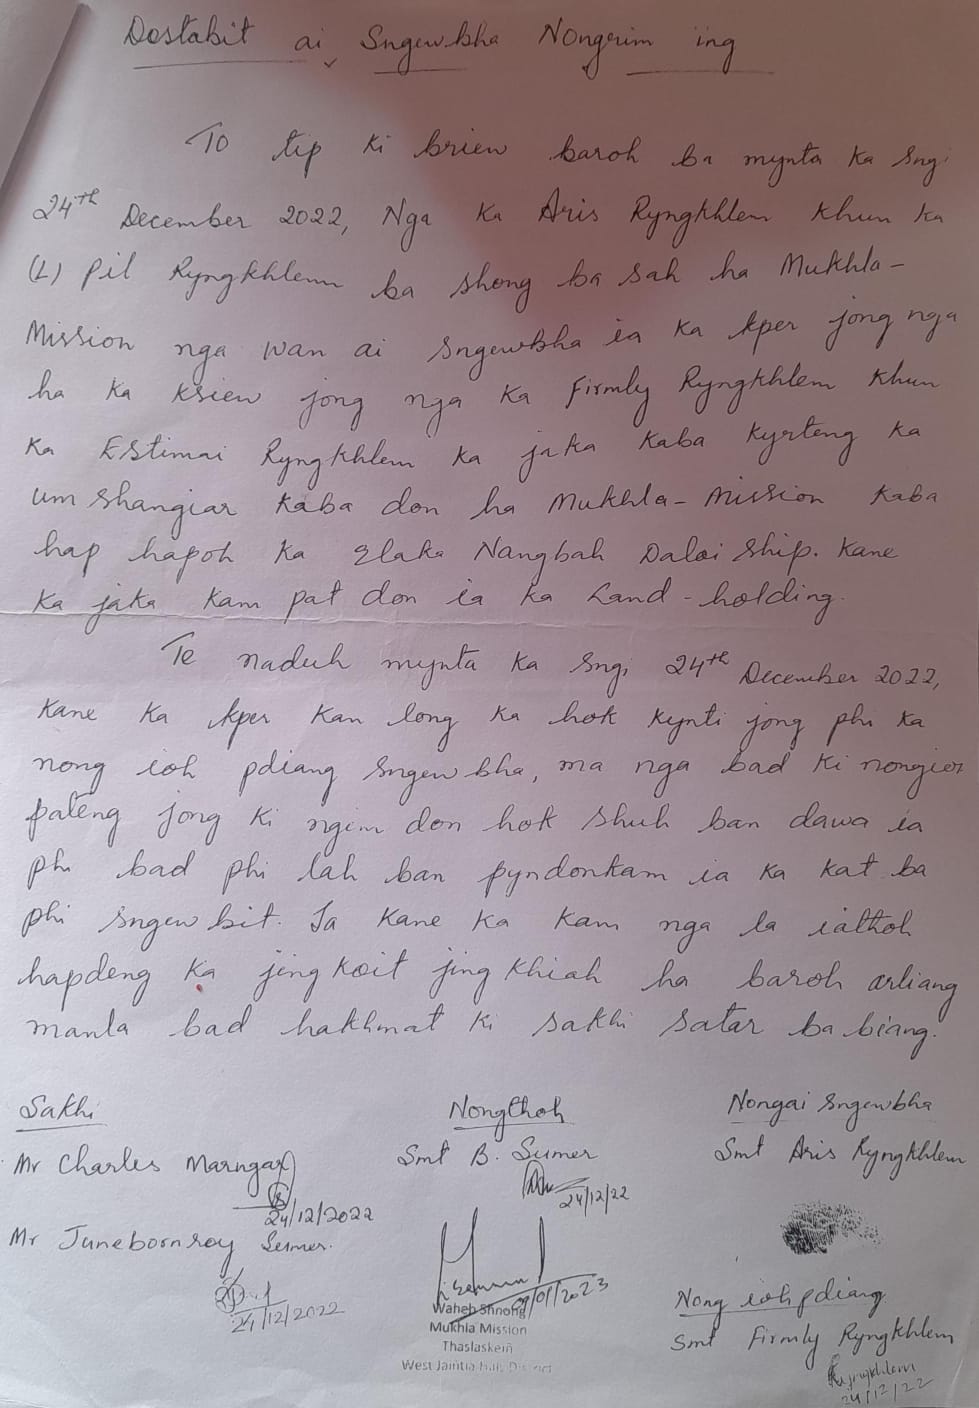 Dostabit ai Sngewbha Nongrim ing
To tip ki briew baroh ba mynta ka sngi
24th December 2022, Nga Ka Aris Ryngkhlem khun ka
(L) Pil Ryngkhlem ba shong ba sah ha Mukhla-
Mission nga wan ai sngewbha ia ka kper jong nga
ha ka ksiew jong nga ka Firmly Ryngkhlem khun
ka Estimai Ryngkhlem ka jaka kaba kyrteng ka
um shangiar kaba don ha Mukhla-Mission kaba
hap hapoh ka elaka Nangbah Daloi ship. Kane
ka jaka kam pat don ia ka Land-holding.
Te naduh mynta ka sngi 24th December 2022,
kane ka kper kan long ka hok kynti jong phi ka
nong ioh pdiang sngew bha, ma nga bad ki nongiop
pateng jong ki ngim don hok shuh ban dawa ia
phi bad phi lah ban pyndonkam ia ka kat ba
phi sngew bit. Ia kane ka kam nga la ialthoh
hapdeng ka jing koit jing khiah ha baroh arliang
manla bad hakhmat ki sakhi satar ba biang.
Sakhi
Mr Charles Marngar
24/12/2022
Mr Junebornroy Sumer.
24/12/2022
Nongthoh
Smt B. Sumer
24/12/22
/01/2023
Waheh Shnong
Mukhla Mission
Thadlaskein
West Jaintia Hills District
Nongai sngewbha
Smt Aris Ryngkhlem
Nong ioh pdiang
Smt Firmly Ryngkhlem
Ryngkhlem
24/12/22